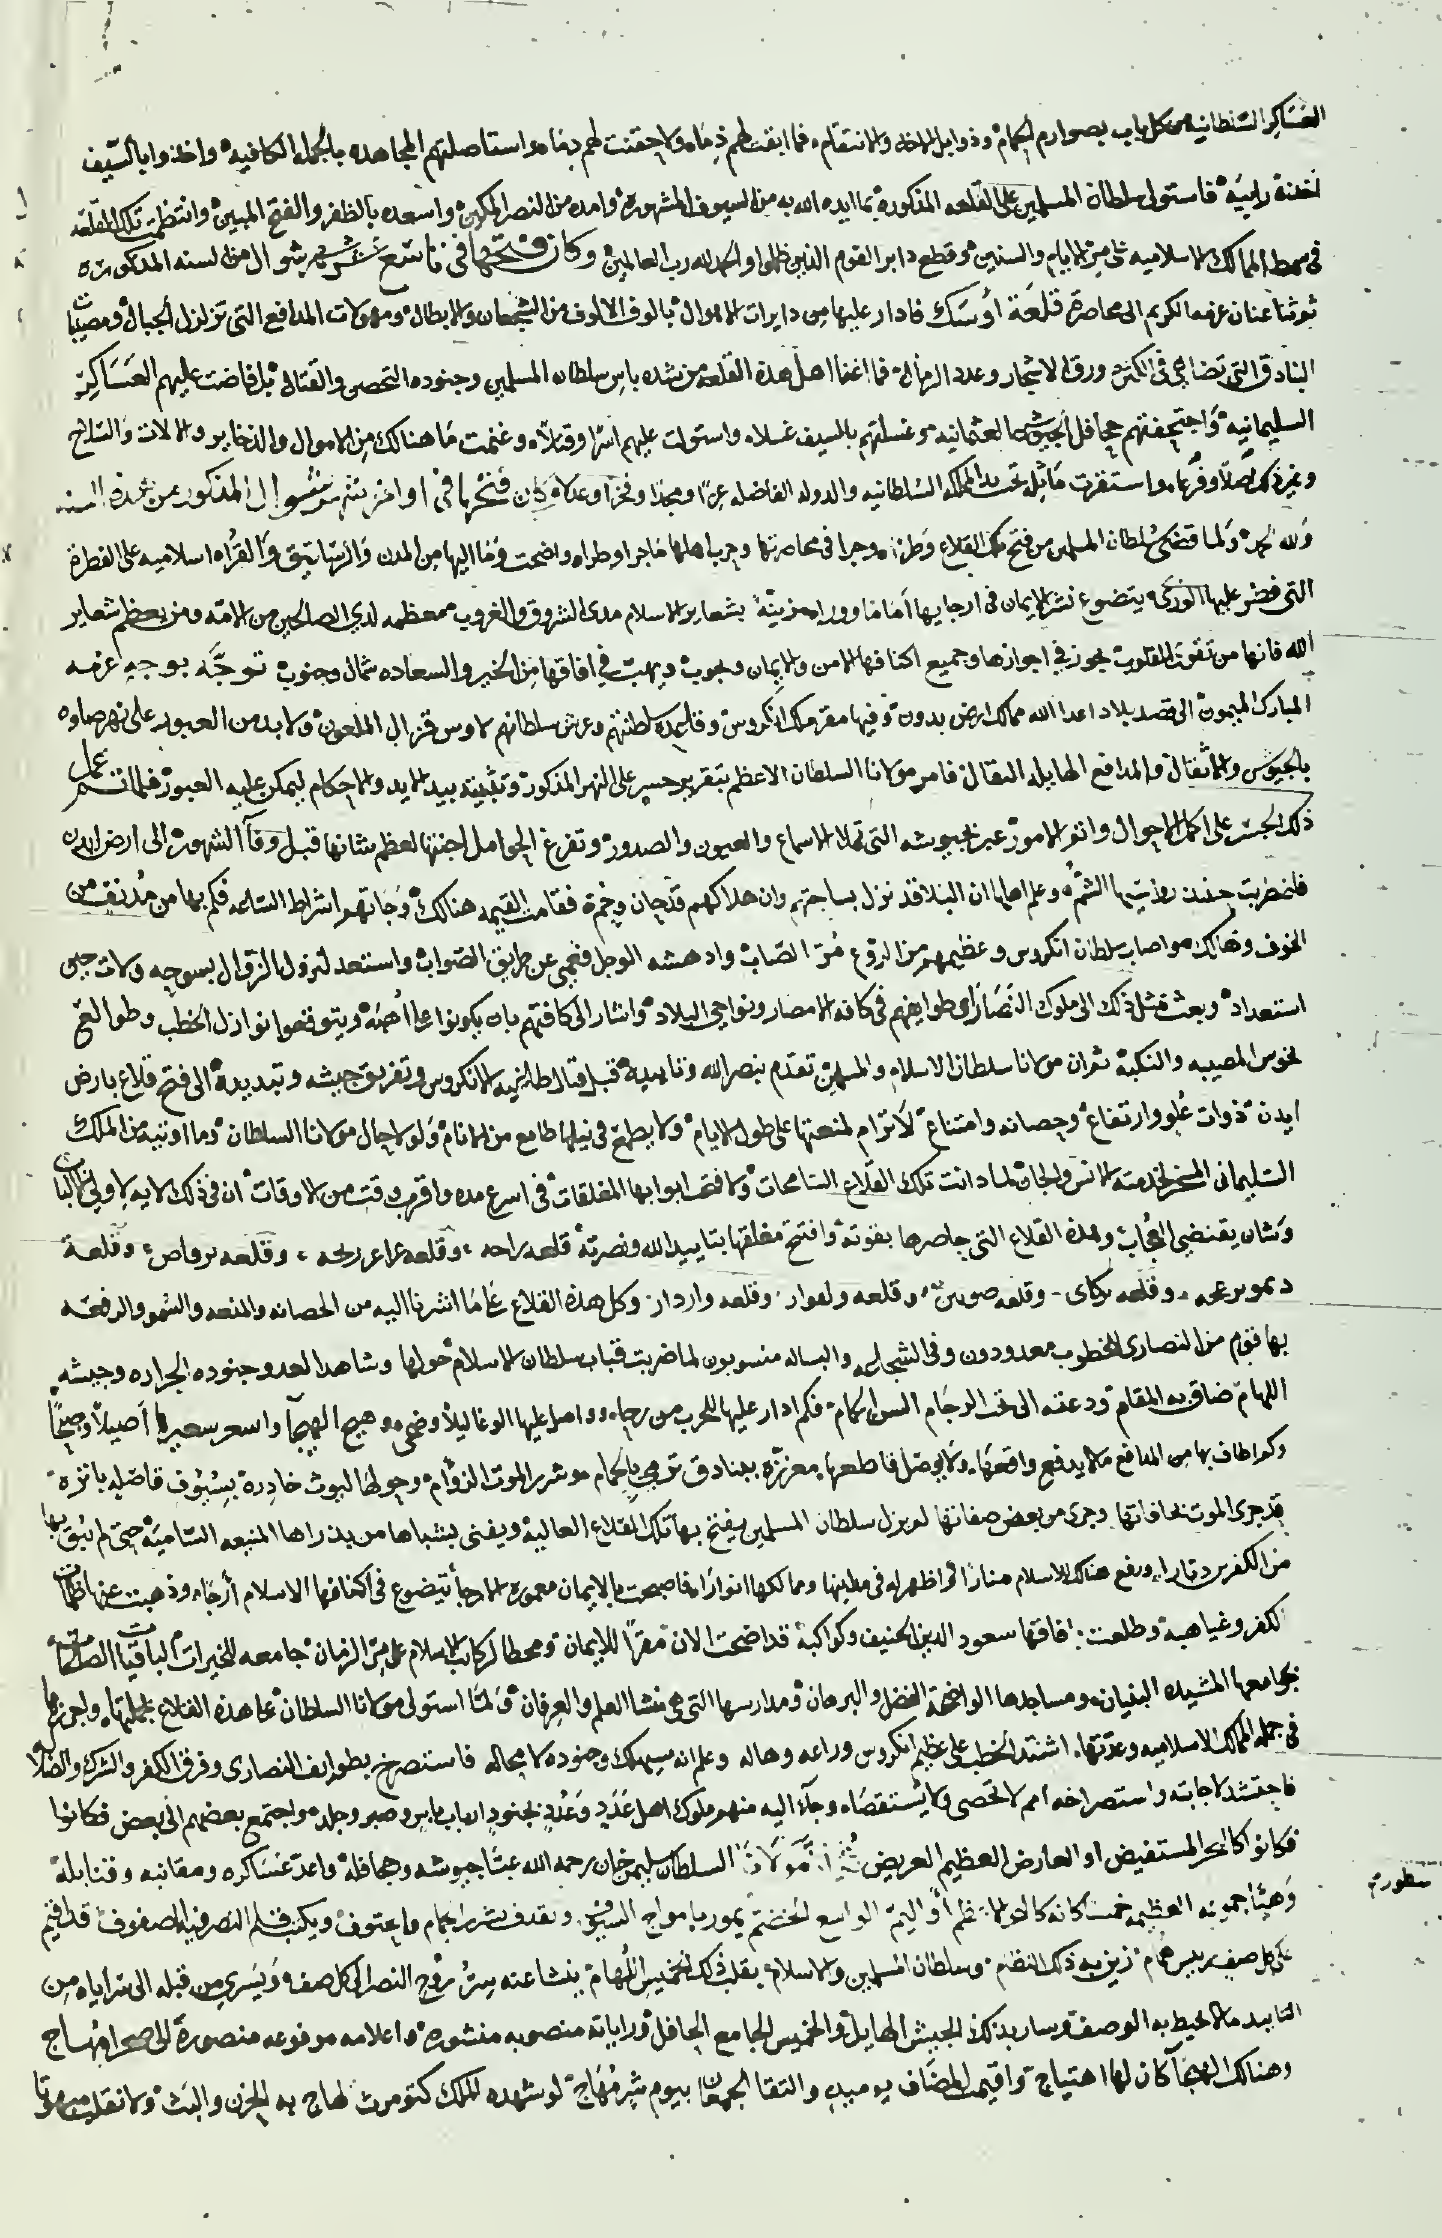 العساكر السلطانيه من كل باب بصوارم الحمام وذوابل الملاحم والانتقام فما ابقت لهم ذماء ولا حقنت لهم دماء واستاصلتهم المجاهده بالجمله الكافيه واخذوا بالسيف
اخذة رابية فاستولى سلطان المسلمين على القلعه المذكورة بما ايده الله به من السيوف المشهورة وامده من النصر المكين واسعده بالظفر والفتح المبين وانتظمت تلك القلعه
في سمط الممالك الاسلاميه على مر الايام والسنين وقطع دابر القوم الذين ظلموا والحمد لله رب العالمين وكان فتحها في تاسع عشر شهر شوال من السنه المذكورة
ثم ثنا عنان عزمه الكريم الى محاصرة قلعة أوسك فادار عليها من دايرات الاهوال بالوف الالوف من الشجعان والابطال ومهولات المدافع التي تزلزل الجبال ومصيبات
البنادق التي تضاهي في الكثرة ورق الاشجار وعدد الرمال فما اغنا اهل هذة القلعه من شده باس سلطان المسلمين وجنوده التحصن والقتال بل فاضت عليهم العساكر
السليمانية واجتحفتهم جحافل الجيوش العثمانيه وغسلتهم بالسيف غسلا واستولت عليهم اسرا وقتلا وغنمت ما هنالك من الاموال والذخاير والالات والسلاح
وغير ذلك اصلا وفرعا واستقرت ماثله تحت يد المملكه السلطانيه والدوله الفاضله عزا ومجدا وفخرا وعلاء كان فتحها في اواخر شهر شوال المذكور من هذه السنه
ولله الحمد ولما قضى سلطان المسلمين من فتح تلك القلاع وطرا وجرا في محاصرتها وحرب اهلها ماجرا وطرا واضحت وما اليها من المدن والرساتيق والقراه اسلاميه على الفطرة
التي فطر عليها الورى يتضوع نشر الايمان في ارجايها أماما وورا مزينة بشعاير الاسلام مدى الشروق والغروب معظمه لدي الصالحين من الامه ومن يعظم شعاير
الله فانها من تقوى القلوب يجوز في اجوازها وجميع اكنافها الامن والايمان ويجوب ويهب في افاقها من الخير والسعاده شمال وجنوب توجه بوجه عزمه
المبارك الميمون الى قصد بلاد اعدا الله ممالك ارض بدون وفيها مقر ملك انكروس وقاعدة سلطنتهم وعرش سلطانهم لاوس قزال الملعون ولا بد من العبور على نهر صاوه
بالجيوش والاثقال والمدافع الهايله الثقال فامر مولانا السلطان الاعظم بتقرير جسر على النهر المذكور وتثبيته بيد الايد والاحكام ليمكن عليه العبور فلما تم عمل
ذلك الجسر على اكمل الاحوال واتم الامور عبر بجيوشه التي تملا الاسماع والعيون والصدور وتفرغ الحوامل اجنتها لعظم شانها قبل وفآ الشهور الى ارض ايدن
فاضطربت حينئذ روابيها الشم وعلم اهلها ان البلا قد نزل بساحتهم وان هلاكهم قد حان وحم فقامت القيمه هنالك وجاتهم اشراط الساعه فكم بها من مدنف من
الخوف وهالك واصاب سلطان انكروس وعظيمهم من الروع مر الصاب وادهشه الوجل فعمي عن طريق الصواب واستعد لنزول الزوال بسوجه ولات حين
استعداد وبعث مثل ذلك الى ملوك النصارى وطوايفهم في كافه الامصار ونواحي البلاد واشار الى كافتهم بان يكونوا على اهبة ويتوقعوا نوازل الخطب وطوالع
نحوس المصيبه والنكبة ثم ان مولانا سلطان الاسلام والمسلمين تقدم بنصر الله وتاييده قبل قتال طاغيه الانكروس وتفريق جيشه وتبديده الى فتح قلاع بارض
ايدن ذوات علو وارتفاع وحصانه وامتناع لا ترام لمنعتها على طول الايام ولا يطمع في نيلها طامع من الانام ولولا حال مولانا السلطان وما اوتيه من الملك
السليماني المسخر لخدمته الانس والجان لما دانت تلك القلاع الشامخات ولا فتحت ابوابها المغلقات في اسرع مده واقرب وقت من الاوقات ان في ذلك لايه لاولي الالباب
وشان يقتضي العجاب وهذة القلاع التي حاصرها بقوته وافتتح مغلقها بتاييد الله ونصرته قلعه براحه وقلعه غراعوريجه وقلعه برقاص وقلعة
ديموبرعجه وقلعه بركاى وقلعه صوبين وقلعه ولفوار وقلعه واردار وكل هذه القلاع على ما اشرنا اليه من الحصانه والمنعه والسمو والرفعه
بها قوم من النصارى للخطوب معدودون وفي الشجاعه والبساله منسوبون لما ضربت قباب سلطان الاسلام حولها وشاهد العدو جنوده الجراره وجيشه
اللهام ضاق به المقام ودعته الى تحت الرجام السن الحمام فكم ادار عليها للحرب من رحاء وواصل عليها الوغا ليلا وضحى وهيج الهيجا واسعر سعيرها أصيلا وصبحا
وكم اطاف بها من المدافع ما لا يدفع واقعها ولا يوصل قاطعها معززة ببنادق ترمي بالحمام وشرر الموت الزؤام وحولها ليوث خادرة بسيوف قاضيه باتره
قد جرى الموت بحافاتها وجرى من بعض صفاتها لم يزل سلطان المسلمين يفتح بها تلك القلاع العالية ويفنى بشباها من بذراها المنيعه السامية حتى لم يبق بها
من الكفر ديارا ورفع هناك للاسلام منارا واظهر له في مدينها وممالكها انوارا فاصبحت بالايمان معموره الارجا يتضوع في اكنافها الاسلام أرجاء وذهبت عنها ظلمات
الكفر وغياهبه وطلعت بافاقها سعود الدين الحنيف وكواكبه قد اضحت الان مقرا للايمان ومحطا لركاب الاسلام على مر الزمان جامعه للخيرات الباقيات الصالحات
بجوامعها المشيده البنيان ومساجدها الواضحة الفضل والبرهان ومدارسها التي هي منشا العلم والعرفان ولما استولى مولانا السلطان على هذه القلاع بجملتها ولم يعزها
في جمله الممالك الاسلاميه وعدتها اشتد الخطب على عظيم انكروس وراعه وهاله وعلم انه سيهلك وجنوده لا محاله فاستصرخ بطوايف النصارى وفرق الكفر والشرك والضلاله
فاحتشد لاجابته واستصراخه أمم لا تحصى ولا يستقصاء وجآء اليه منهم ملوك اهل عدد وعدد بجنود ارباب باس وصبر وجلد واجتمع بعضهم الى بعض فكانوا
فكانوا كالبحر المستفيض او العارض العظيم العريض ثم ان مولانا السلطان سليم خان رحمه الله عبا جيوشه وجحافله واعد عساكره ومقانبه وقنابله
وهيا جموعه العظيمه خمسا كانه كالطود الاعظم أو اليم الواسع الخضم يمور بامواج السيوف ويقذف بشرر الحمام والحتوف ويكتب قلم النصر فيه الصفوف قد اقيم
على كل صف رييس همام زين به ذلك النظام وسلطان المسلمين والاسلام بقلب ذلك الخميس اللهام ينشا عنه سر روح النصر الى كل صف ويسري من قبله الى سراياه من
التاييد ما لا يحيط به الوصف وسار بذلك الجيش الهايل والخميس الجامع الحافل وراياته منصوبه منشورة واعلامه مرفوعه منصورة الى صحرا مهاج
وهنالك الهيجآ كان لها اهتياج واقيمت المصاف يوميذ والتقا الجمعان بيوم شر مهاج لو شهده الملك كيومرث لهاج به الحزن والبث ولانقلب مبهوتا